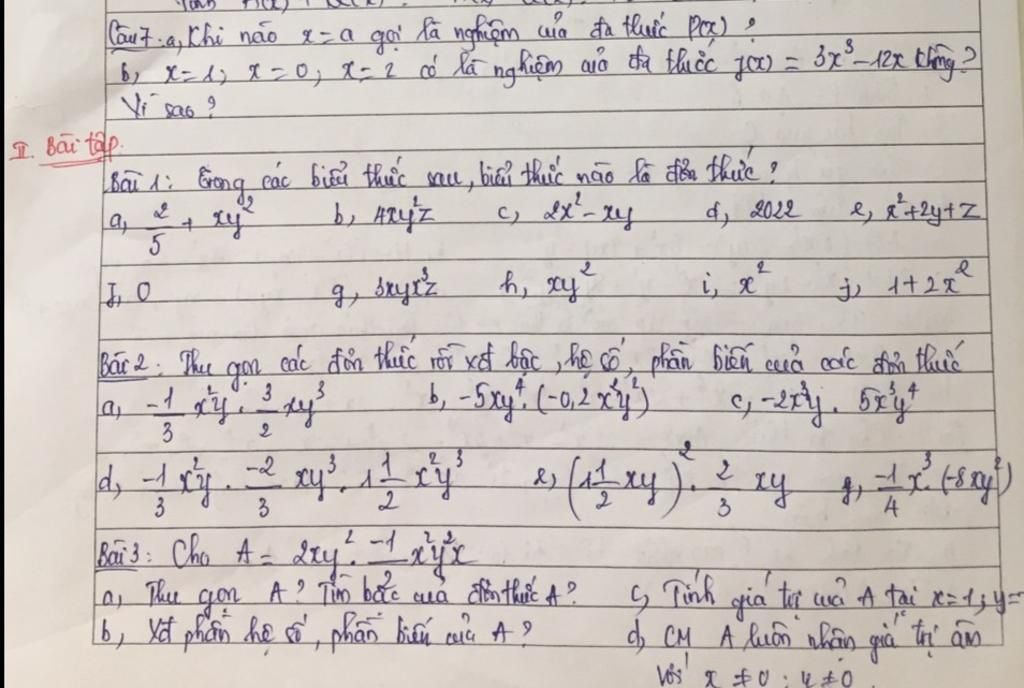 Câu 7. a, Khi nào x = a gọi là nghiệm của đa thức P(x)?
b, x=1; x=0; x=2 có là nghiệm của đa thức f(x) = 3x³ - 12x không?
Vì sao?
II. Bài tập.
Bài 1: Trong các biểu thức sau, biểu thức nào là đơn thức?
a, 2/5 + xy² b, 4xy²z c, 2x² - xy d, 2022 e, x²+2y+z
f, 0 g, 3xyx³z h, xy² i, x² j, 1+2x²
Bài 2: Thu gọn các đơn thức rồi xét bậc, hệ số, phần biến của các đơn thức
a, -1/3 x²y . 3/2 xy³ b, -5xy⁴.(-0,2x²y²) c, -2x³y . 5x³y⁴
d, -1/3 x²y . -2/3 xy³ . 1 1/2 x²y³ e, (1 1/2 xy)² . 2/3 xy g, -1/4 x³.(-8xy²)
Bài 3: Cho A = 2xy² . -1 x²y²x
a, Thu gọn A? Tìm bậc của đơn thức A? c, Tính giá trị của A tại x=1; y=
b, Xét phần hệ số, phần biến của A? d, CM A luôn nhận giá trị âm
với x ≠ 0; y ≠ 0.